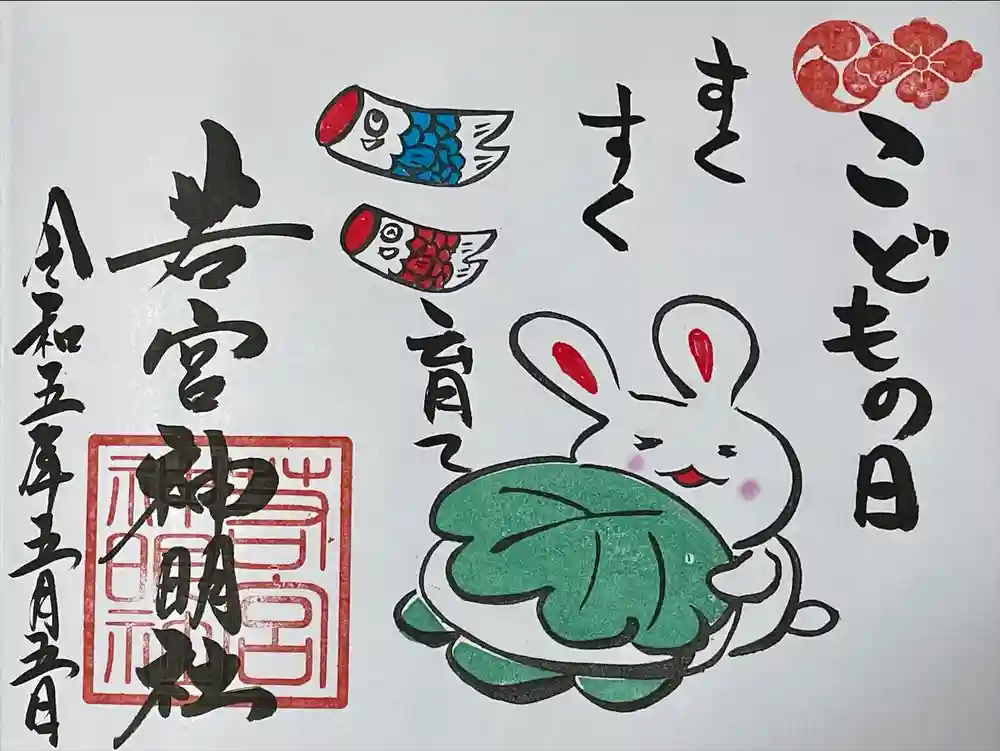 こどもの日
すく
すく
育て
若宮神明社
令和五年五月五日
若宮
神明社